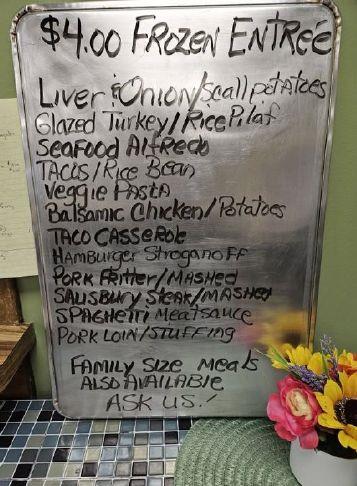 $4.00 FROZEN ENTRÉE
Liver & Onion/Scall potatoes
Glazed Turkey/Rice Pilaf
Seafood Alfredo
TACOS/Rice Bean
Veggie PASTA
Balsamic Chicken/Potatoes
TACO CASSEROLE
HAMBURGER STROGANOFF
PORK FRITTER/MASHED
SALISBURY STEAK/MASHED
SPAGHETTI Meatsauce
PORK LOIN/STUFFING
FAMILY SIZE Meals
ALSO AVAILABLE
ASK US!